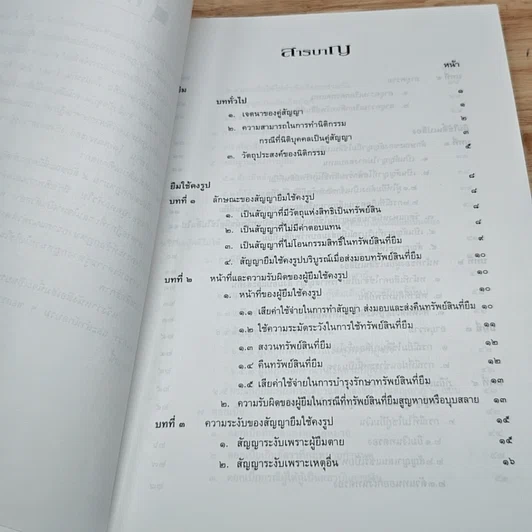 สารบาญ
หน้า
บททั่วไป ๑
๑. เจตนาของคู่สัญญา ๑
๒. ความสามารถในการทำนิติกรรม ๓
กรณีที่นิติบุคคลเป็นคู่สัญญา ๓
๓. วัตถุประสงค์ของนิติกรรม ๕
ยืมใช้คงรูป ๘
บทที่ ๑ ลักษณะของสัญญายืมใช้คงรูป ๘
๑. เป็นสัญญาที่มีวัตถุแห่งสิทธิเป็นทรัพย์สิน ๘
๒. เป็นสัญญาที่ไม่มีค่าตอบแทน ๘
๓. เป็นสัญญาที่ไม่โอนกรรมสิทธิ์ในทรัพย์สินที่ยืม ๙
๔. สัญญายืมใช้คงรูปบริบูรณ์เมื่อส่งมอบทรัพย์สินที่ยืม ๑๐
บทที่ ๒ หน้าที่และความรับผิดของผู้ยืมใช้คงรูป ๑๐
๑. หน้าที่ของผู้ยืมใช้คงรูป ๑๐
๑.๑ เสียค่าใช้จ่ายในการทำสัญญา ส่งมอบและส่งคืนทรัพย์สินที่ยืม ๑๐
๑.๒ ใช้ความระมัดระวังในการใช้ทรัพย์สินที่ยืม ๑๑
๑.๓ สงวนทรัพย์สินที่ยืม ๑๒
๑.๔ คืนทรัพย์สินที่ยืม ๑๒
๑.๕ เสียค่าใช้จ่ายในการบำรุงรักษาทรัพย์สินที่ยืม ๑๓
๒. ความรับผิดของผู้ยืมในกรณีที่ทรัพย์สินที่ยืมสูญหายหรือบุบสลาย ๑๓
บทที่ ๓ ความระงับของสัญญายืมใช้คงรูป ๑๕
๑. สัญญาระงับเพราะผู้ยืมตาย ๑๕
๒. สัญญาระงับเพราะเหตุอื่น ๑๖